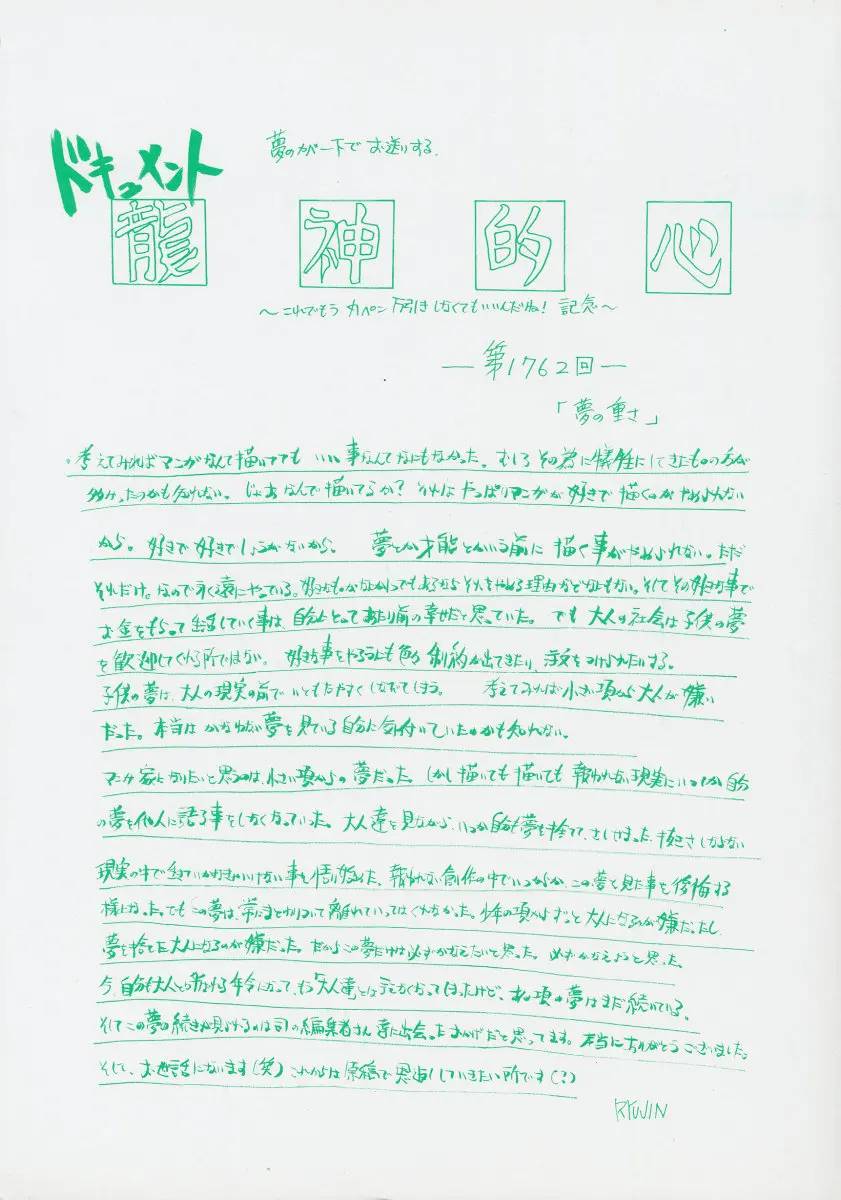 夢のカバー下でお送りする
ドキュメント
龍神的心
〜これでもうカペン下引きしなくてもいいんだね!記念〜
―第1762回―
「夢の重さ」
・考えてみればマンガなんて描いててもいい事なんてなにもなかった。むしろその為に犠牲にしてきたものの方が
多かったのかも知れない。じゃあなんで描いてるか?それはやっぱりマンガが好きで描くのがやめられない
から。好きで好きでしょうがないから。夢とか才能とかいう前に描く事がやめられない。ただ
それだけ。なので永遠にやっている。好きなものがなにかって もあるからそれをやめる理由などなにもない。そしてその好きな事で
お金をもらって生活していく事は、自分にとってあたり前の幸せだと思っていた。でも大人の社会は子供の夢
を歓迎してくれる所ではない。好きな事をやるうえにも色々制約が出てきたり、注文をつけられたりする。
子供の夢は、大人の現実の前でいともたやすくしなびてしまう。考えてみれば小さい頃から大人が嫌い
だった。本当はかなわない夢を見ている自分に気付いていたのかも知れない。
マンガ家になりたいと思うのは、小さい頃からの夢だった。しかし描いても描いても報われない現実にいつしか自分
の夢を他人に語る事をしなくなっていった。大人達を見ながら、いつか自分も夢を捨て、
現実の中で生きていかなきゃいけない事を悟り始めた。報われない創作の中でいつからか、この夢を見た事を後悔する
様になった。でもこの夢は、常にまとわりついて離れていってはくれなかった。少年の頃からずっと大人になるのが嫌だったし、
夢を捨てた大人になるのが嫌だった。だからこの夢だけは必ずかなえたいと思った。必ずかなえようと思った。
今、自分も大人と呼ばれる年令になって、もう「大人達」とは言えなくなってしまったけど、あの頃の夢はまだ続いている。
そしてこの夢の続きが見れるのは司の編集者さん達に出会ったおかげだと思ってます。本当にありがとうございました。
そして、お世話になります(笑)これからは原稿で恩返ししていきたい所です(?)
RYUJIN